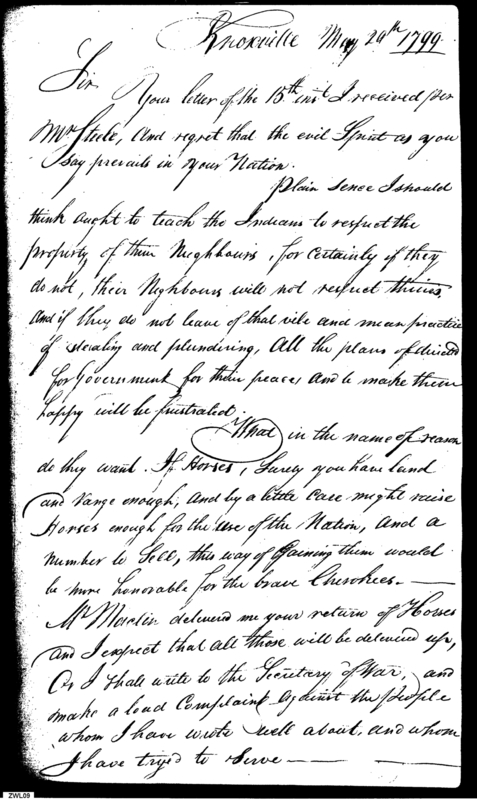 Knoxville May 29th 1799
Sir,
Your letter of the 15th inst I received per
Mr Steele, And regret that the evil Spirit as you
say prevails in your Nation.
Plain Sence I should
think aught to teach the Indians to respect the
property of their Neighbours, for certainly if they
do not, their Neighbours will not respect theirs,
And if they do not leave of that vile and mean practice
of stealing and plundering, All the plans of
for Government for their peace, And to make them
happy will be frustrated.
What in the name of reason
do they want. If Horses, Surely you have land
and range enough, And by a little Care might raise
Horses enough for the use of the Nation, And a
number to Sell, this way of Gaining them would
be more honorable for the brave Cherokees.
Mr Maclin delivered me your return of Horses
and I expect that all those will be delivered up,
Or I shall write to the Secretary of War, and
make a loud Complaint Against the people
whom I have wrote well about, and whom
I have tryed to Serve
ZWL09